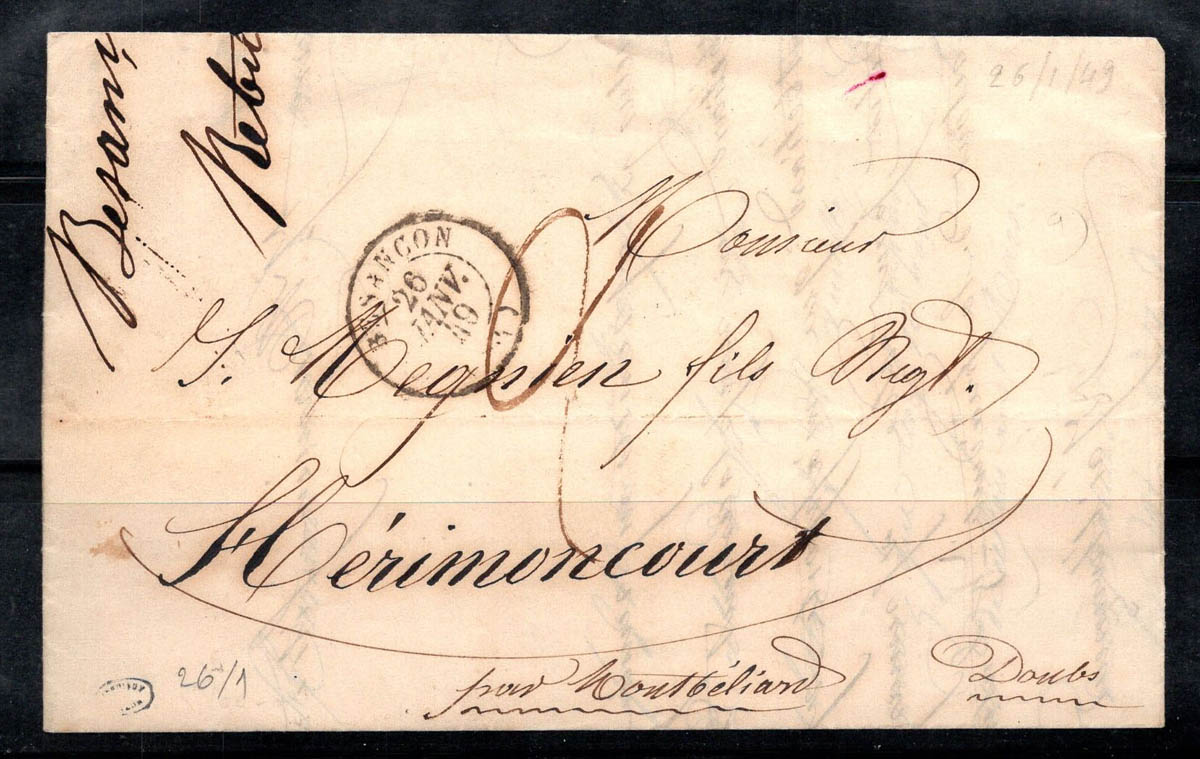 26/1/49
Besanç
Rebu
BESANÇON
26
JANV.
49
Monsieur
J. Megnien fils Negt.
Hérimoncourt
par Montbéliard
Doubs
26/1